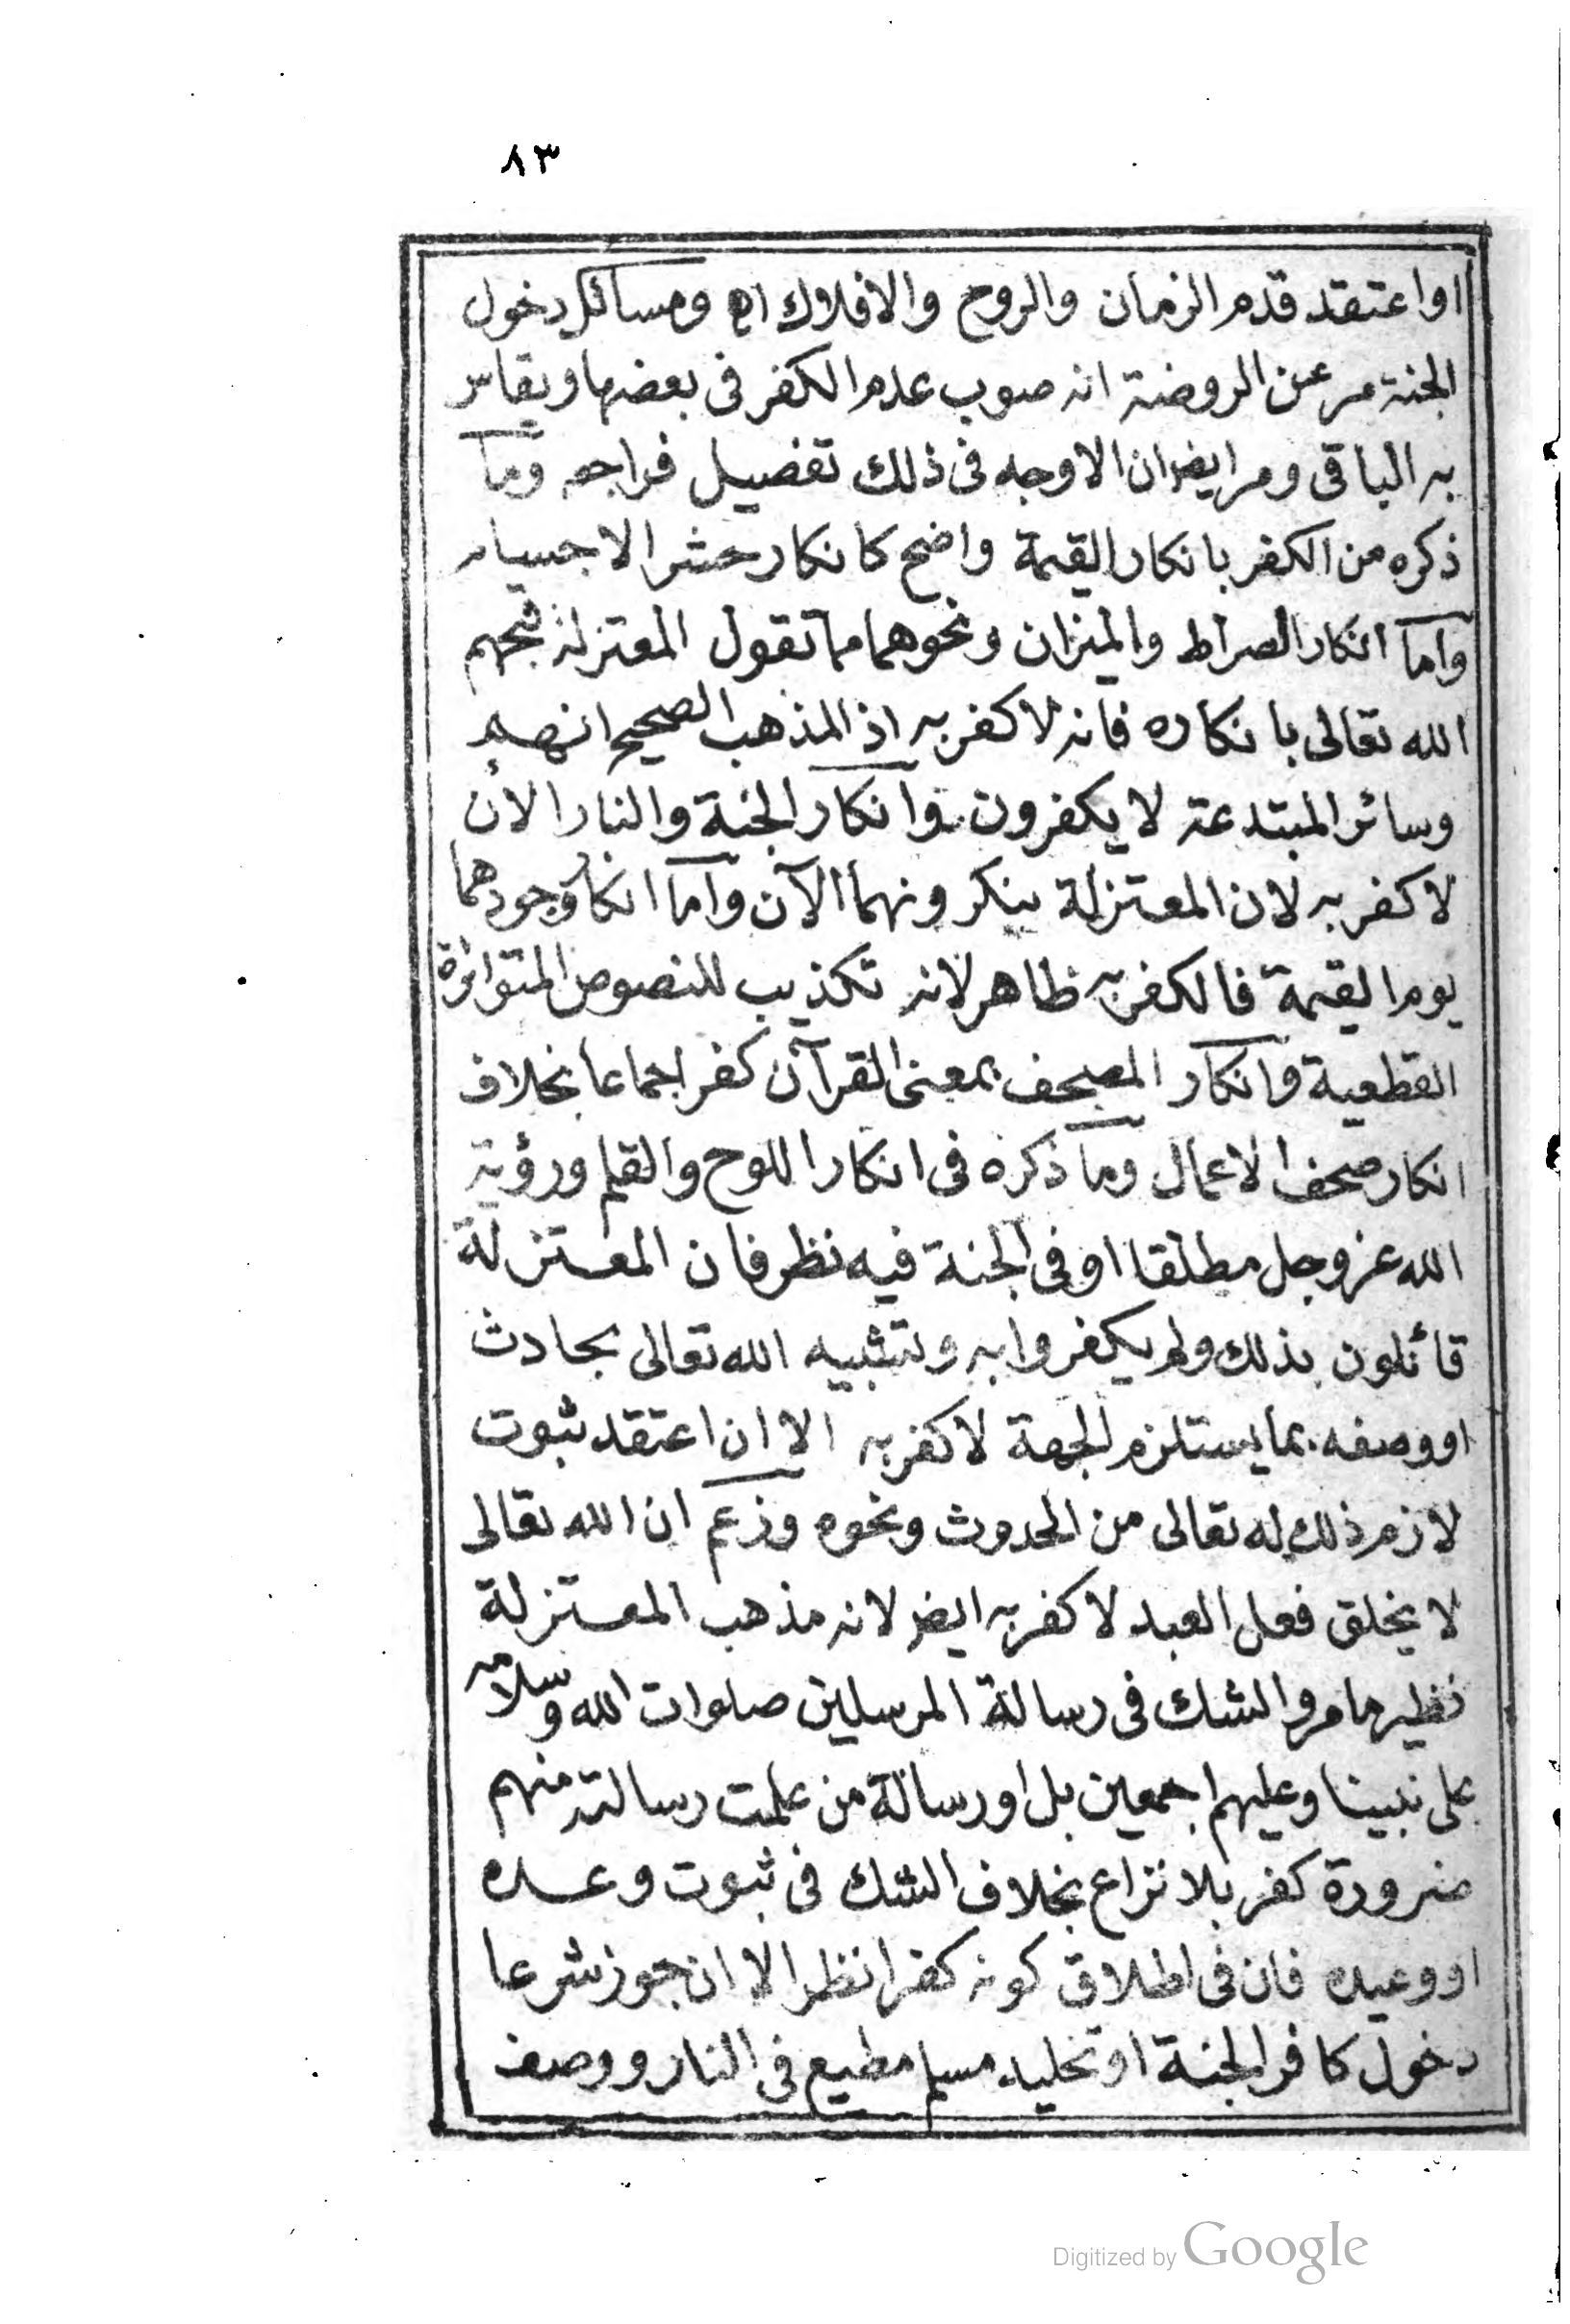 ٨٣
او اعتقد قدم الزمان والروح والافلاك اه ومسائل دخول
الجنة مر عن الروضة انه صوب عدم الكفر فى بعضها ويقاس
به الباقى ومر ايضا ان الاوجه فى ذلك تفصيل فراجعه وما
ذكره من الكفر بانكار القيمة واضح كانكار حشر الاجسام
واما انكار الصراط والميزان ونحوهما مما تقول المعتزلة قبحهم
الله تعالى بانكاره فانه لا كفر به اذ المذهب الصحيح انهم
وسائر المبتدعة لا يكفرون وانكار الجنة والنار الآن
لا كفر به لان المعتزلة ينكرونهما الآن واما انكار وجودهما
يوم القيمة فالكفر به ظاهر لانه تكذيب للنصوص المتواترة
القطعية وانكار المصحف بمعنى القرآن كفر اجماعا بخلاف
انكار صحف الاعمال وما ذكره فى انكار اللوح والقلم ورؤية
الله عز وجل مطلقا او فى الجنة فيه نظر فان المعتزلة
قائلون بذلك ولم يكفروا به وتشبيه الله تعالى بحادث
او وصفه بما يستلزم الجهة لا كفر به الا ان اعتقد ثبوت
لازم ذلك له تعالى من الحدوث ونحوه وزعم ان الله تعالى
لا يخلق فعل العبد لا كفر به ايضا لانه مذهب المعتزلة
نظير ما مر والشك فى رسالة المرسلين صلوات الله وسلامه
على نبينا وعليهم اجمعين بل او رسالة من علمت رسالته منهم
ضرورة كفر بلا نزاع بخلاف الشك فى ثبوت وعده
او وعيده فان فى اطلاق كونه كفرا نظرا الا ان جوز شرعا
دخول كافر الجنة او تخليد مسلم مطيع فى النار ووصف
Digitized by Google